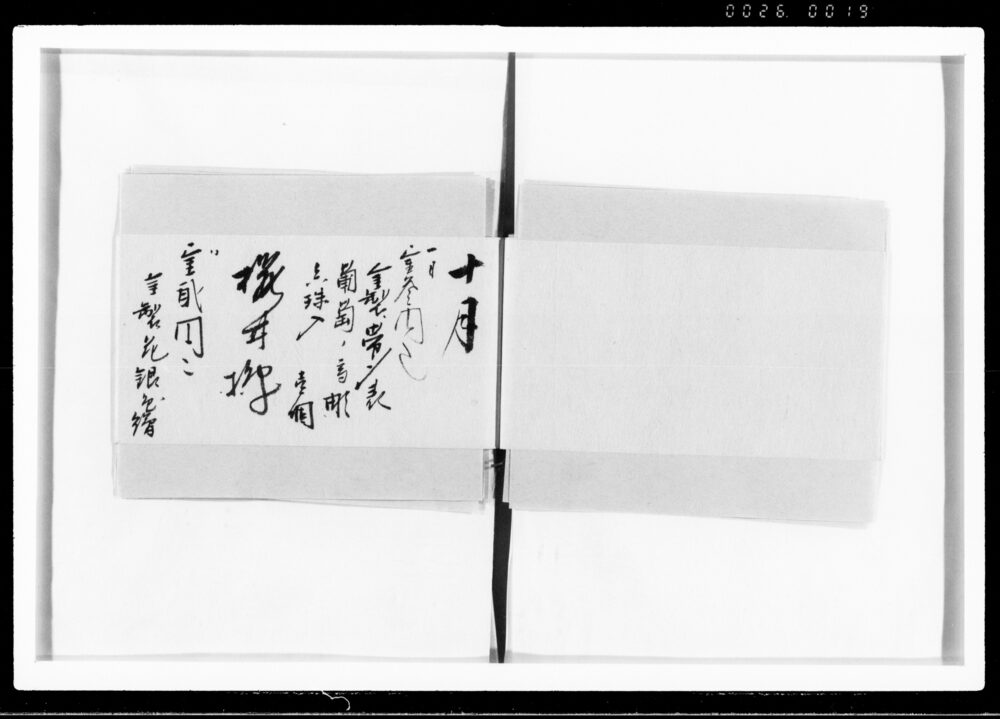 0026. 0019
十月
一日
金参円也
金製帯〆表
葡萄、高彫
真珠入 壱個
桜井様
〃
金弐円〻
金製花銀色繪